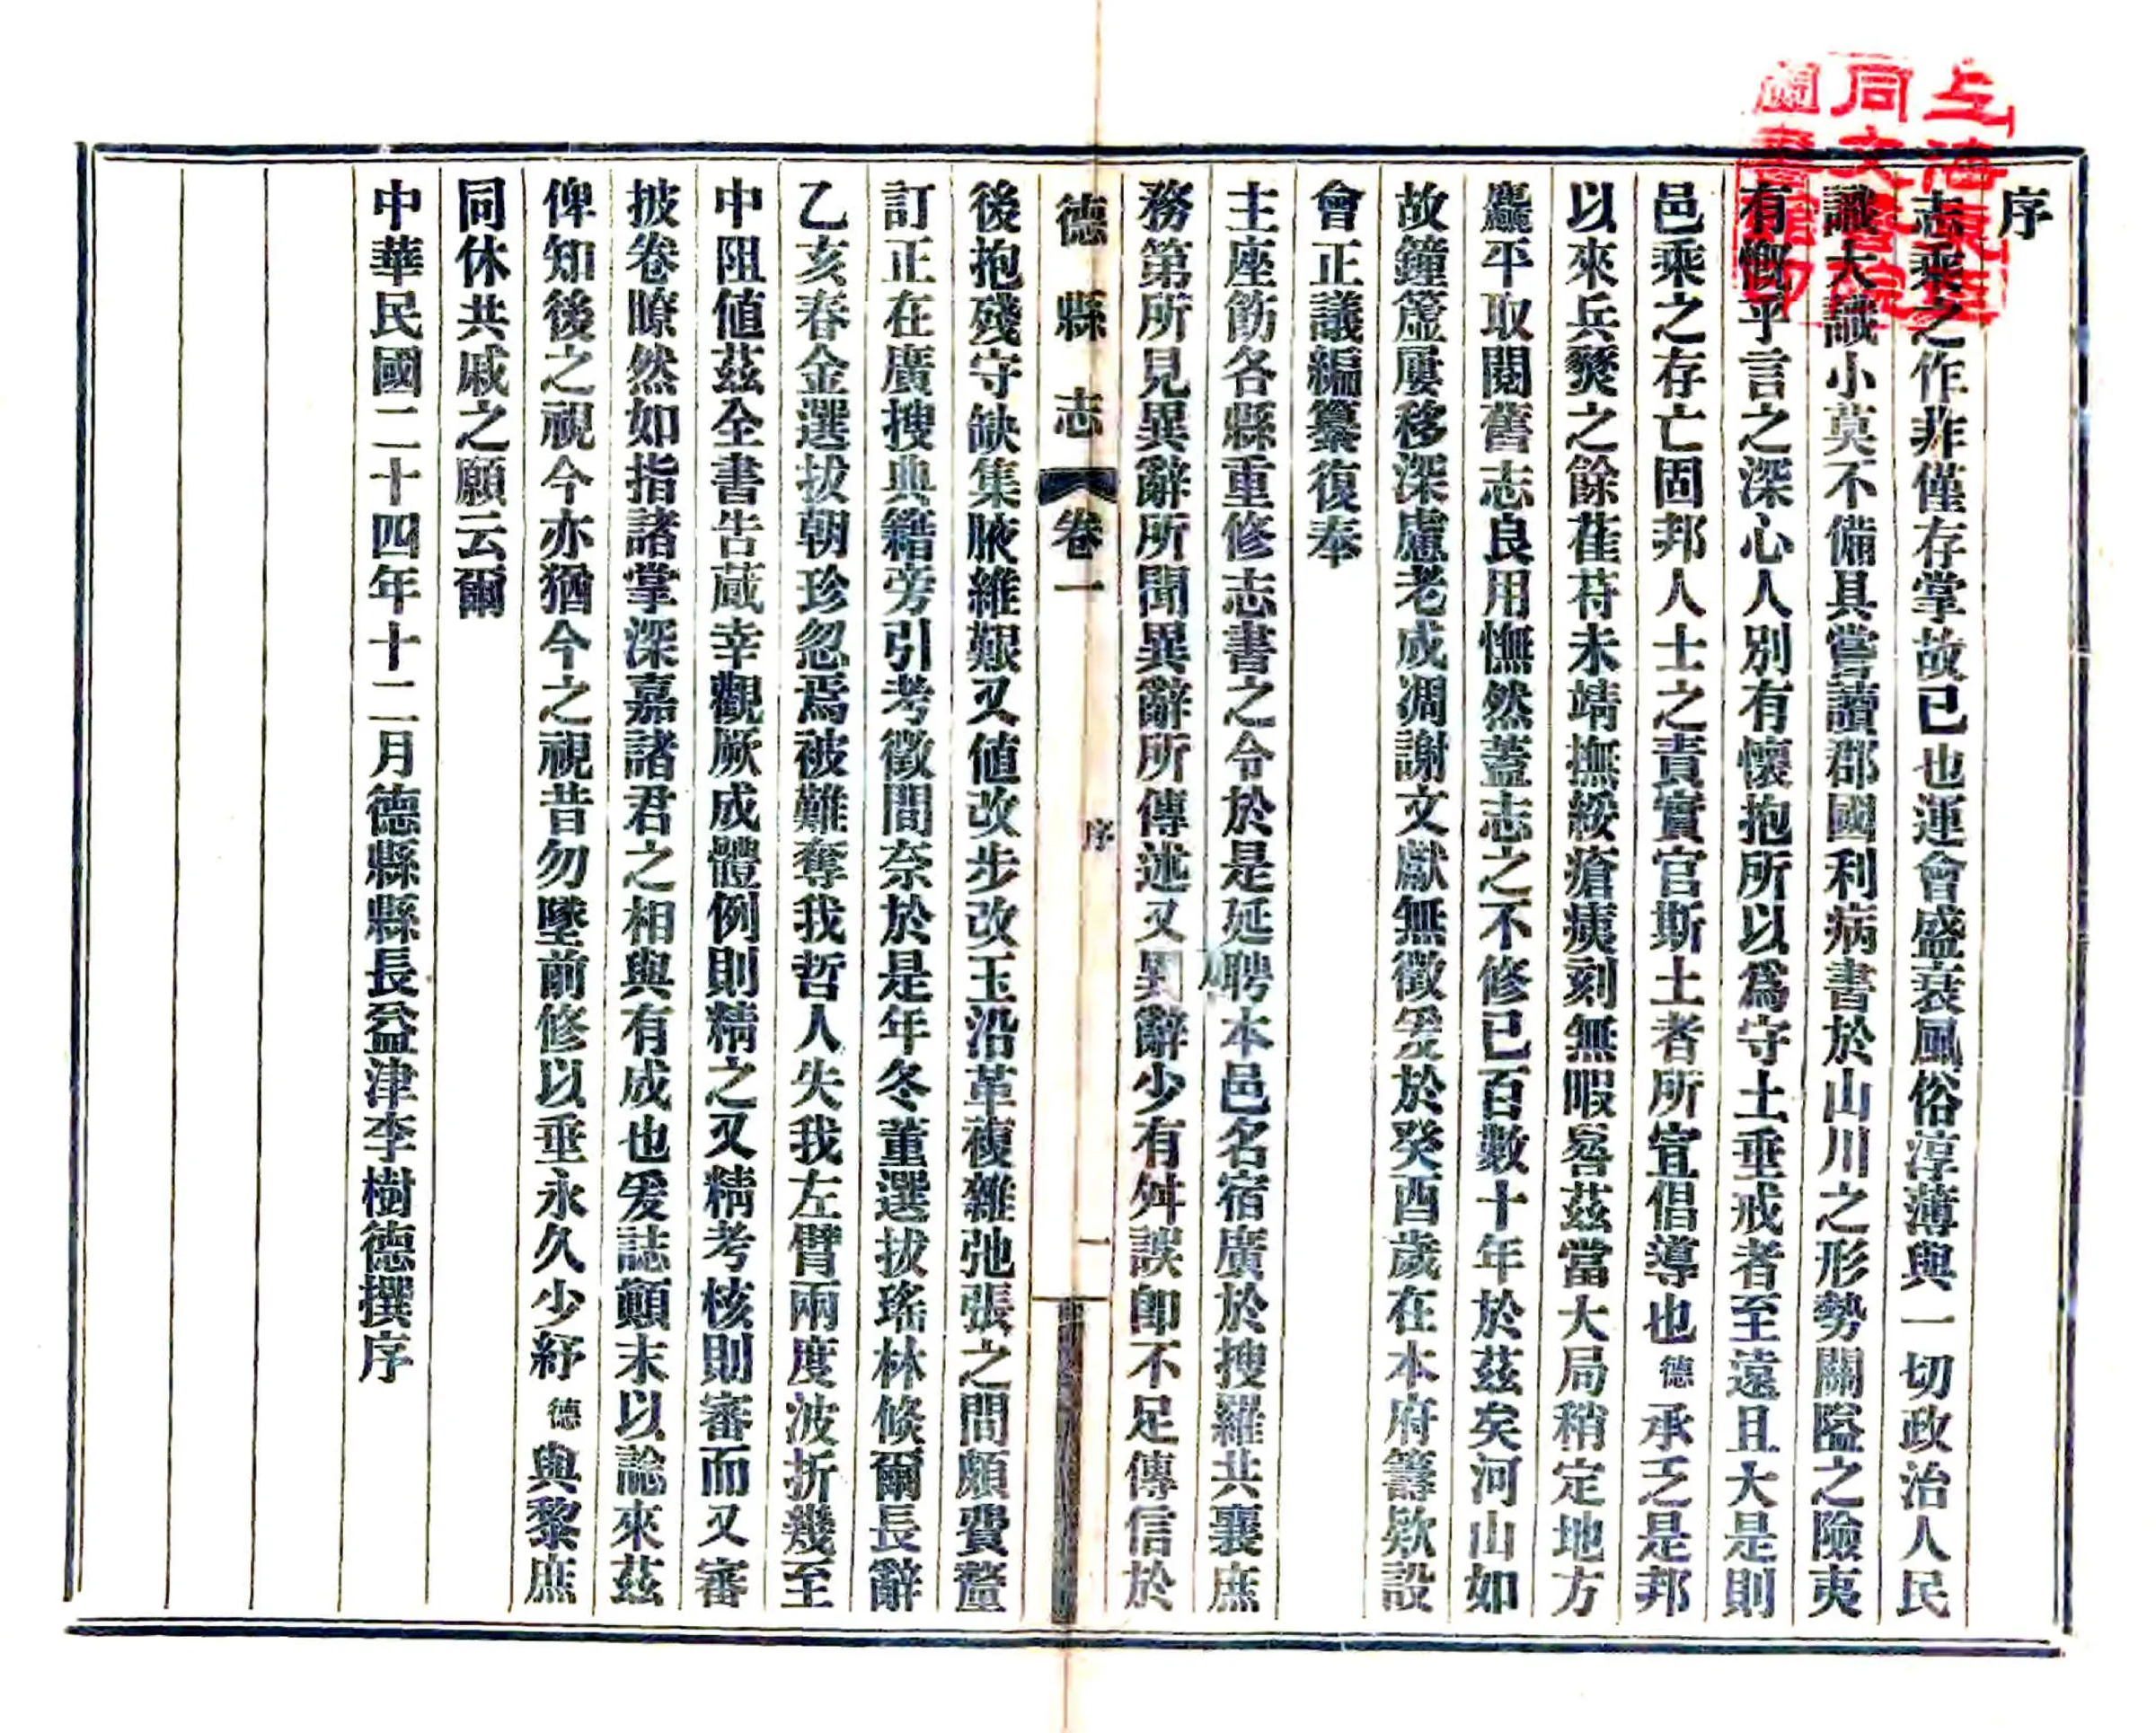 序
志乘之作非僅存掌故已也運會盛衰風俗淳薄與一切政治人民
識大識小莫不備具嘗讀郡國利病書於山川之形勢關隘之險夷
有慨乎言之深心人別有懷抱所以爲守土垂戒者至遠且大是則
邑乘之存亡固邦人士之責實官斯土者所宜倡導也德承乏是邦
以來兵燹之餘萑苻未靖撫綏瘡痍刻無暇晷茲當大局稍定地方
麤平取閱舊志良用憮然蓋志之不修已百數十年於茲矣河山如
故鐘簴屢移深慮老成凋謝文獻無徵爰於癸酉歲在本府籌欵設
會正議編纂復奉
主座飭各縣重修志書之令於是延聘本邑名宿廣於搜羅共襄庶
務第所見異辭所聞異辭所傳述又異辭少有舛誤卽不足傳信於
德縣志 卷一 序 一
後抱殘守缺集腋維艱又値改步改玉沿革複雜弛張之間頗費釐
訂正在廣搜典籍旁引考徵間奈於是年冬董選拔瑤林倐爾長辭
乙亥春金選拔朝珍忽焉被難奪我哲人失我左臂兩度波折幾至
中阻値茲全書告蕆幸觀厥成體例則精之又精考核則審而又審
披卷瞭然如指諸掌深嘉諸君之相與有成也爰誌顚末以諗來茲
俾知後之視今亦猶今之視昔勿墜前修以垂永久少紓德與黎庶
同休共戚之願云爾
中華民國二十四年十二月德縣縣長益津李樹德撰序